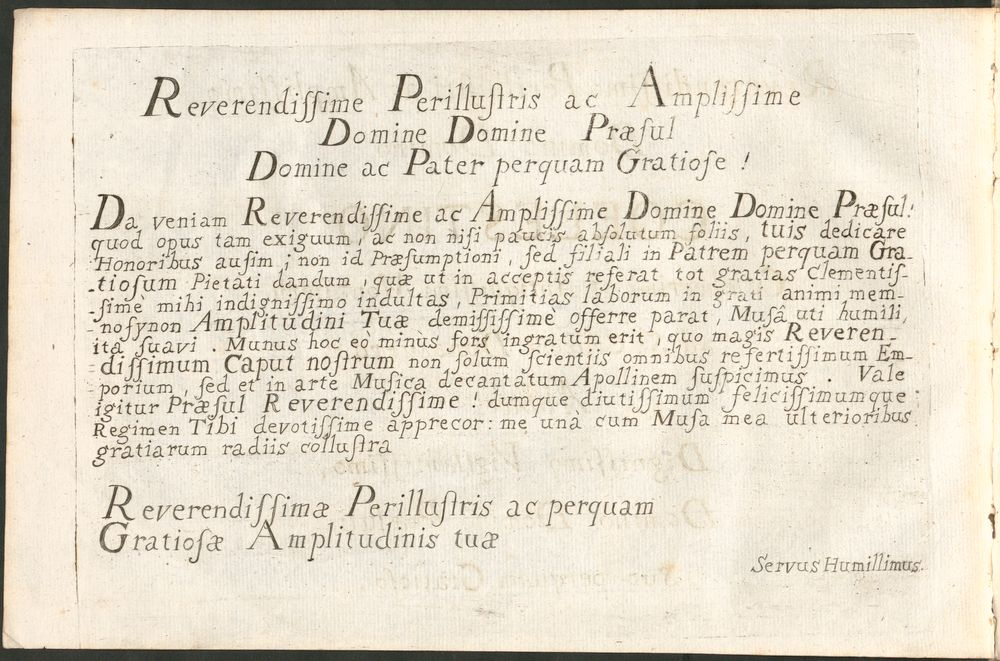 Reverendiſſime Perilluſtris ac Ampliſſime
Domine Domine Præſul
Domine ac Pater perquam Gratioſe !
Da veniam Reverendiſſime ac Ampliſſime Domine Domine Præſul!
quod opus tam exiguum, ac non niſi paucis abſolutum foliis, tuis dedicare
Honoribus auſim; non id Præſumptioni, ſed filiali in Patrem perquam Gra-
-tiosum Pietati dandum, quæ ut in acceptis referat tot gratias Clementiſ-
-ſimè mihi indigniſſimo indultas, Primitias laborum in grati animi mem-
-noſynon Amplitudini Tuæ demiſſiſſimè offerre parat, Muſâ uti humili,
ita ſuavi. Munus hoc eò minùs fors ingratum erit, quo magis Reveren-
-diſſimum Caput noſtrum non ſolùm ſcientiis omnibus refertiſſimum Em-
-porium, ſed et in arte Muſica decantatum Apollinem ſuſpicimus. Vale
igitur Præſul Reverendiſſime! dumque diutiſſimum feliciſſimumque
Regimen Tibi devotiſſime apprecor: me unà cum Muſa mea ulterioribus
gratiarum radiis colluſtra
Reverendiſſimæ Perilluſtris ac perquam
Gratioſæ Amplitudinis tuæ
Servus Humillimus.